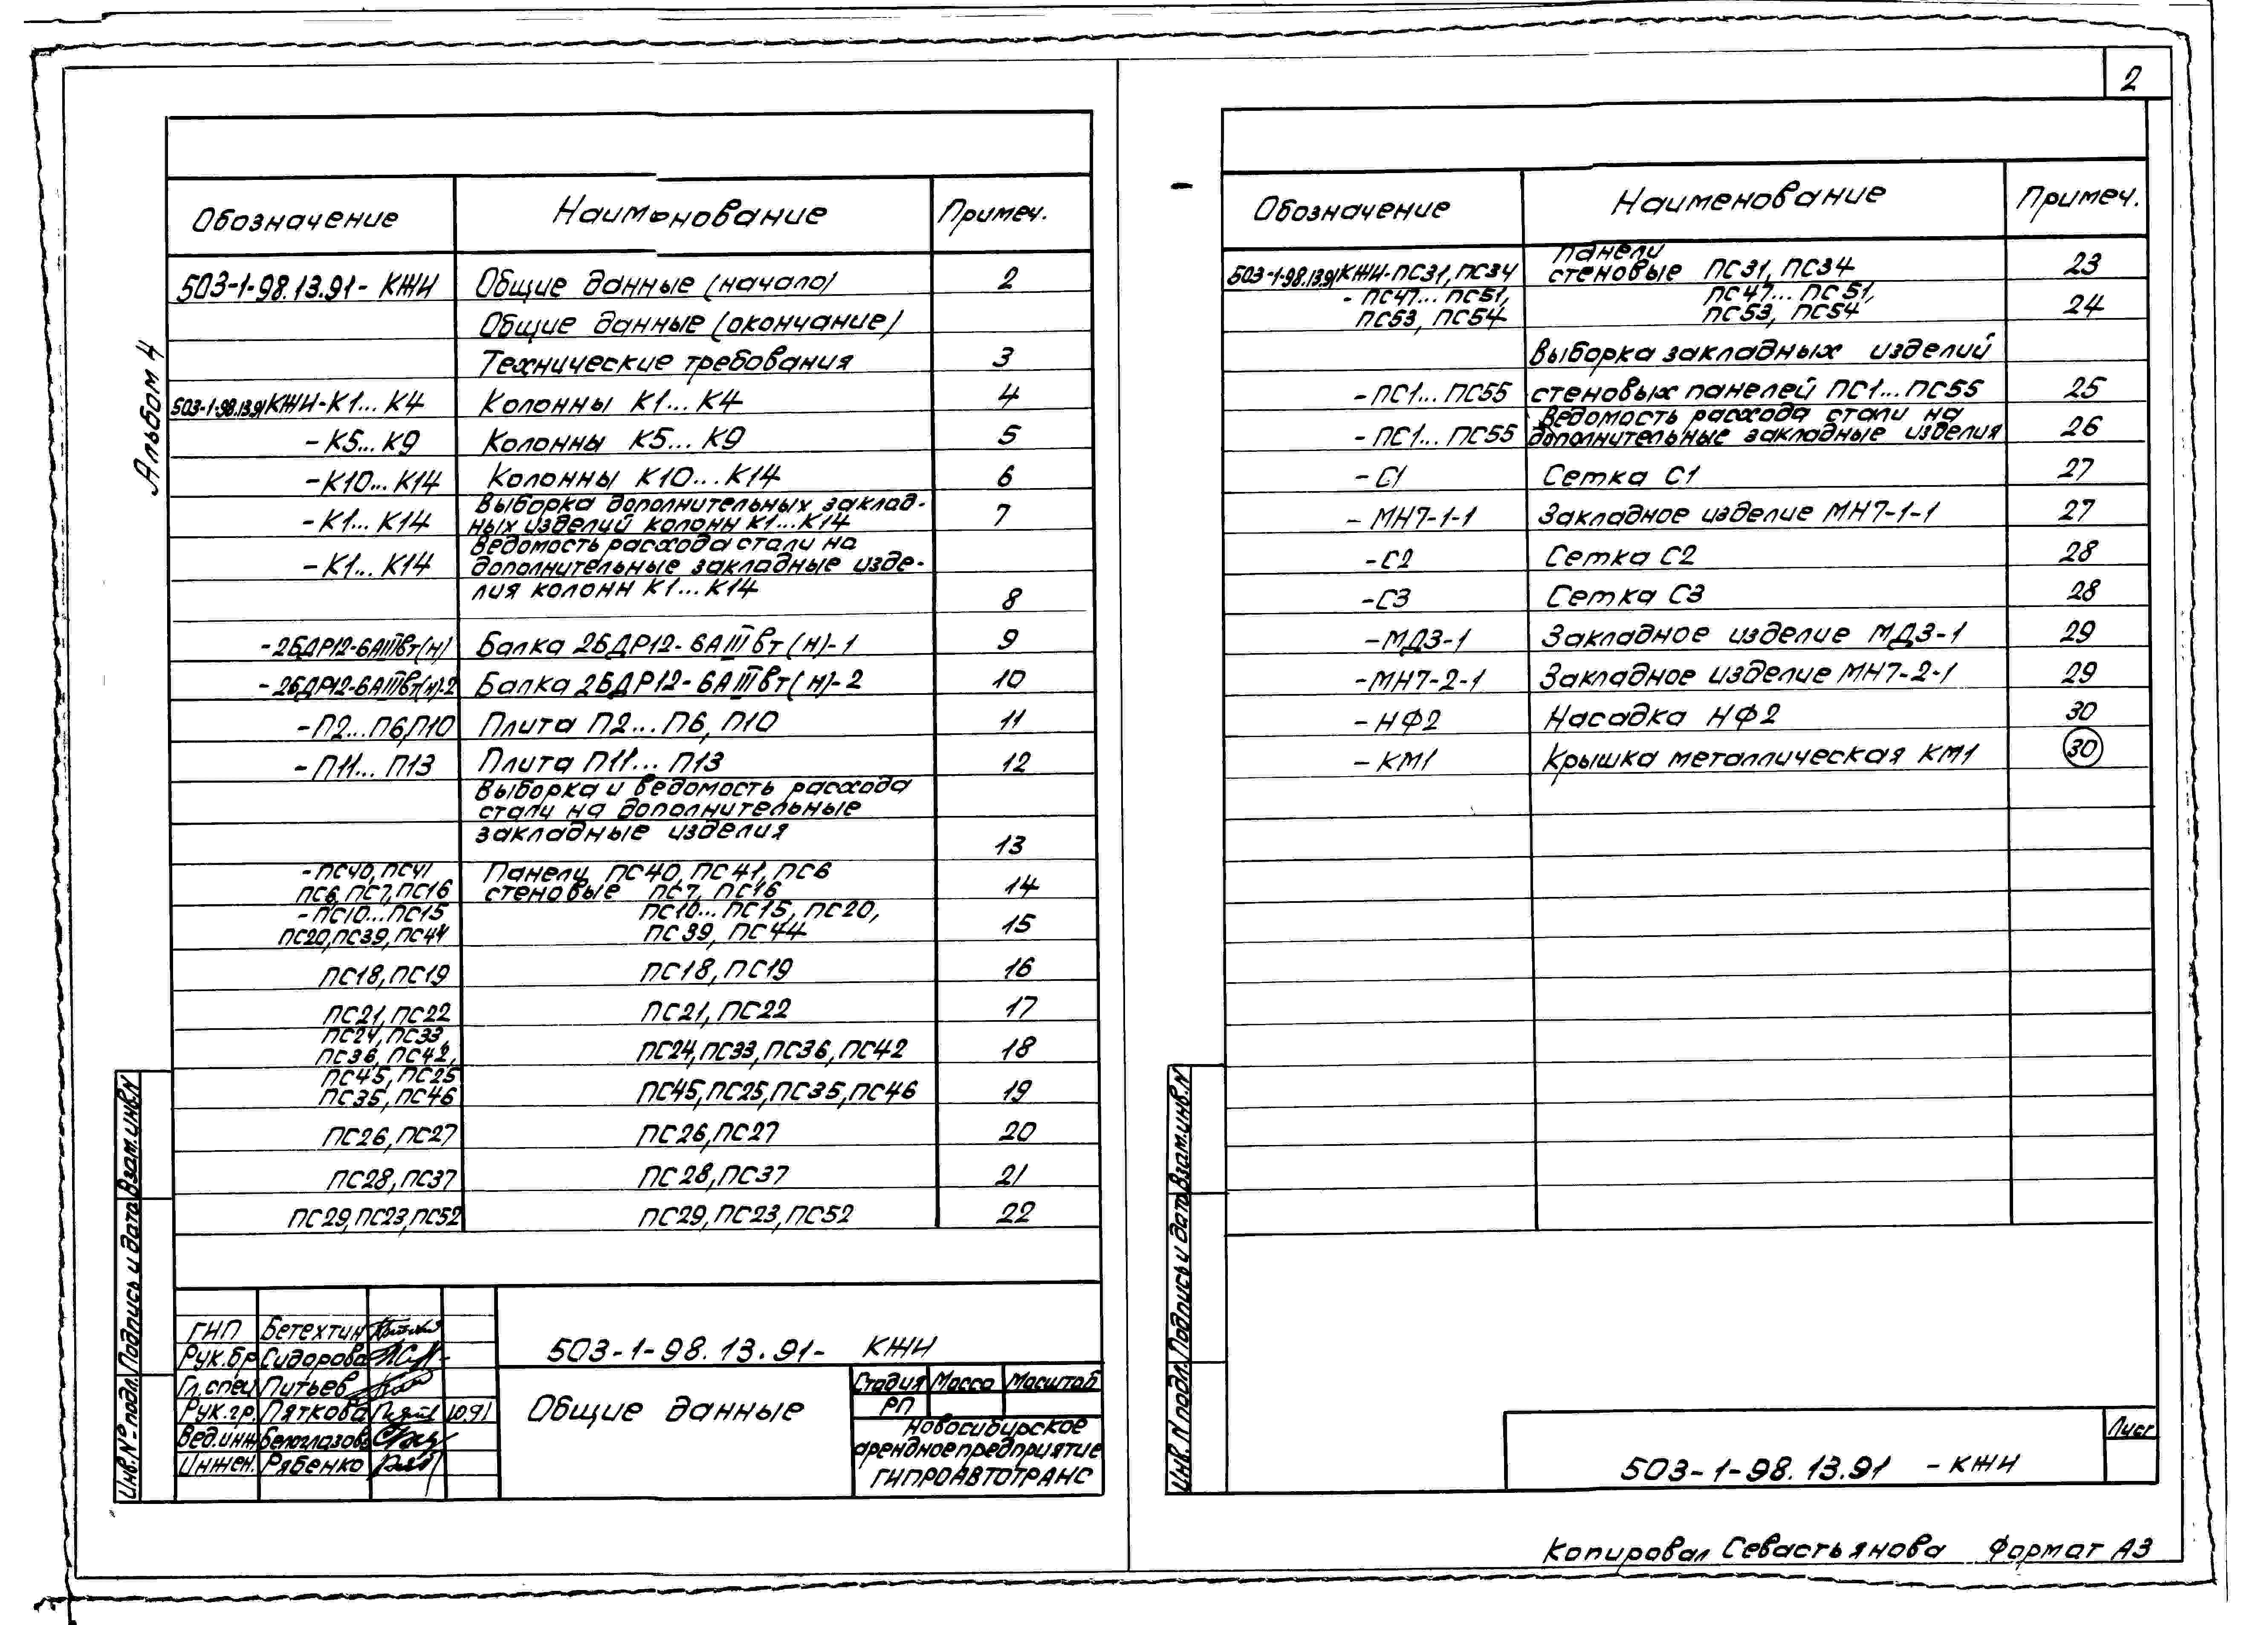 2
Альбом 4
Обозначение Наименование Примеч.
503-1-98.13.91- КЖИ Общие данные (начало) 2
Общие данные (окончание)
Технические требования 3
503-1-98.13.91КЖИ-К1... К4 Колонны К1... К4 4
-К5... К9 Колонны К5... К9 5
-К10... К14 Колонны К10... К14 6
-К1... К14 Выборка дополнительных заклад-
ных изделий колонн К1...К14 7
-К1... К14 Ведомость расхода стали на
дополнительные закладные изде-
лия колонн К1...К14 8
-2БДР12-6АIIIвт(н) Балка 2БДР12-6АIIIвт(н)-1 9
-2БДР12-6АIIIвт(н)-2 Балка 2БДР12-6АIIIвт(н)-2 10
-П2...П6,П10 Плита П2...П6, П10 11
-П11... П13 Плита П11... П13 12
Выборка и ведомость расхода
стали на дополнительные
закладные изделия 13
-ПС40, ПС41 Панели ПС40, ПС41, ПС6
ПС6, ПС7, ПС16 стеновые ПС7, ПС16 14
-ПС10...ПС15 ПС10... ПС15, ПС20,
ПС20, ПС39, ПС44 ПС39, ПС44 15
ПС18, ПС19 ПС18, ПС19 16
ПС21, ПС22 ПС21, ПС22 17
ПС24, ПС33,
ПС36, ПС42, ПС24, ПС33, ПС36, ПС42 18
ПС45, ПС25
ПС35, ПС46 ПС45, ПС25, ПС35, ПС46 19
ПС26, ПС27 ПС26, ПС27 20
ПС28, ПС37 ПС28, ПС37 21
ПС29, ПС23, ПС52 ПС29, ПС23, ПС52 22
Инв.№ подл. Подпись и дата Взам.инв.N
ГИП Бетехтин
Рук.бр Сидорова
Гл.спец Питьев
Рук.гр. Пяткова 10.91
Вед.инж Белоглазова
Инжен. Рябенко
503-1-98.13.91- КЖИ
Общие данные
Стадия Масса Масштаб
РП
Новосибирское
арендное предприятие
ГИПРОАВТОТРАНС
Обозначение Наименование Примеч.
Панели
503-1-98.13.91КЖИ-ПС31, ПС34 стеновые ПС31, ПС34 23
- ПС47... ПС51, ПС47... ПС51,
ПС53, ПС54 ПС53, ПС54 24
Выборка закладных изделий
-ПС1... ПС55 стеновых панелей ПС1... ПС55 25
Ведомость расхода стали на
-ПС1... ПС55 дополнительные закладные изделия 26
-С1 Сетка С1 27
-МН7-1-1 Закладное изделие МН7-1-1 27
-С2 Сетка С2 28
-С3 Сетка С3 28
-МД3-1 Закладное изделие МД3-1 29
-МН7-2-1 Закладное изделие МН7-2-1 29
-НФ2 Насадка НФ2 30
-КМ1 Крышка металлическая КМ1 30
Инв.N подл. Подпись и дата Взам.инв.N
503-1-98.13.91 -КЖИ
Лист
Копировал Севастьянова Формат А3